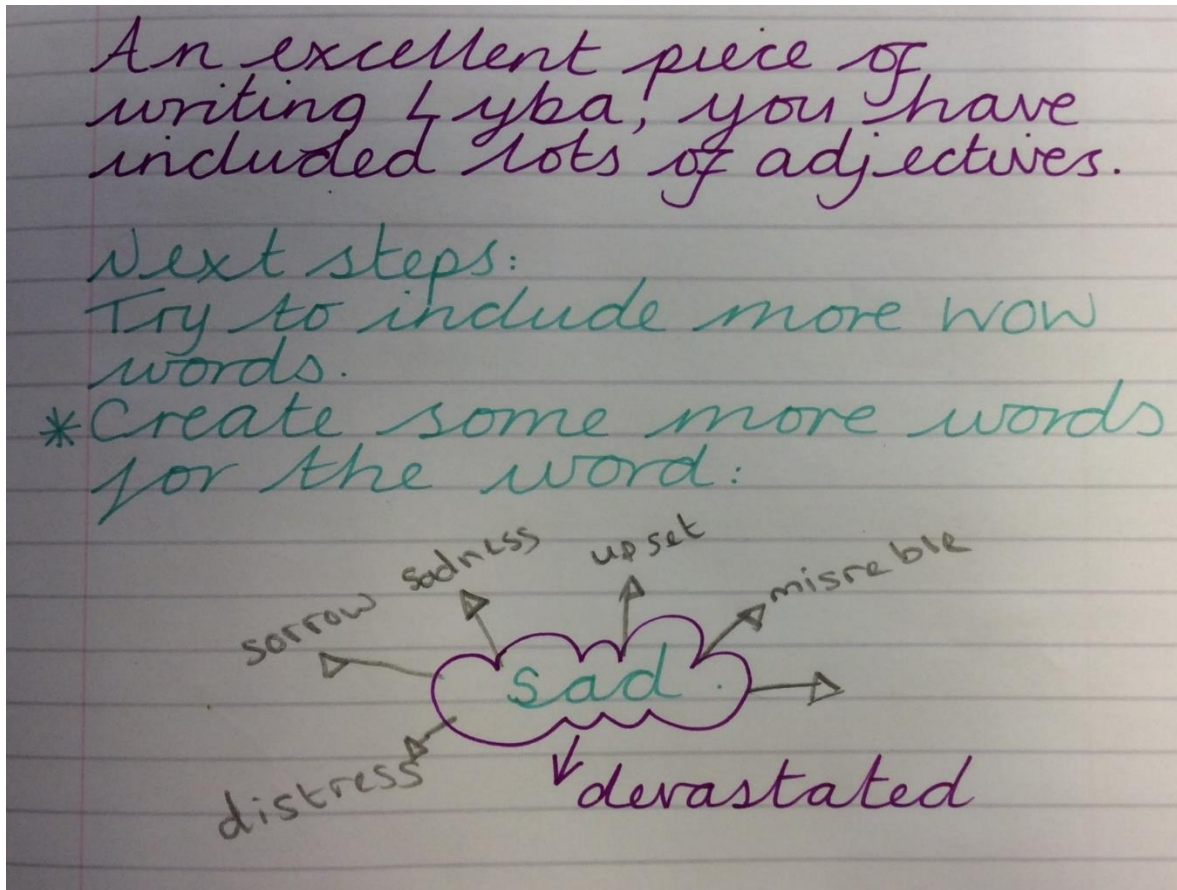 An excellent piece of
writing Lyba, you have
included lots of adjectives.
Next steps:
Try to include more WOW
words.
*Create some more words
for the word:
sorrow
sadness
upset
misreble
sad.
distress
devastated